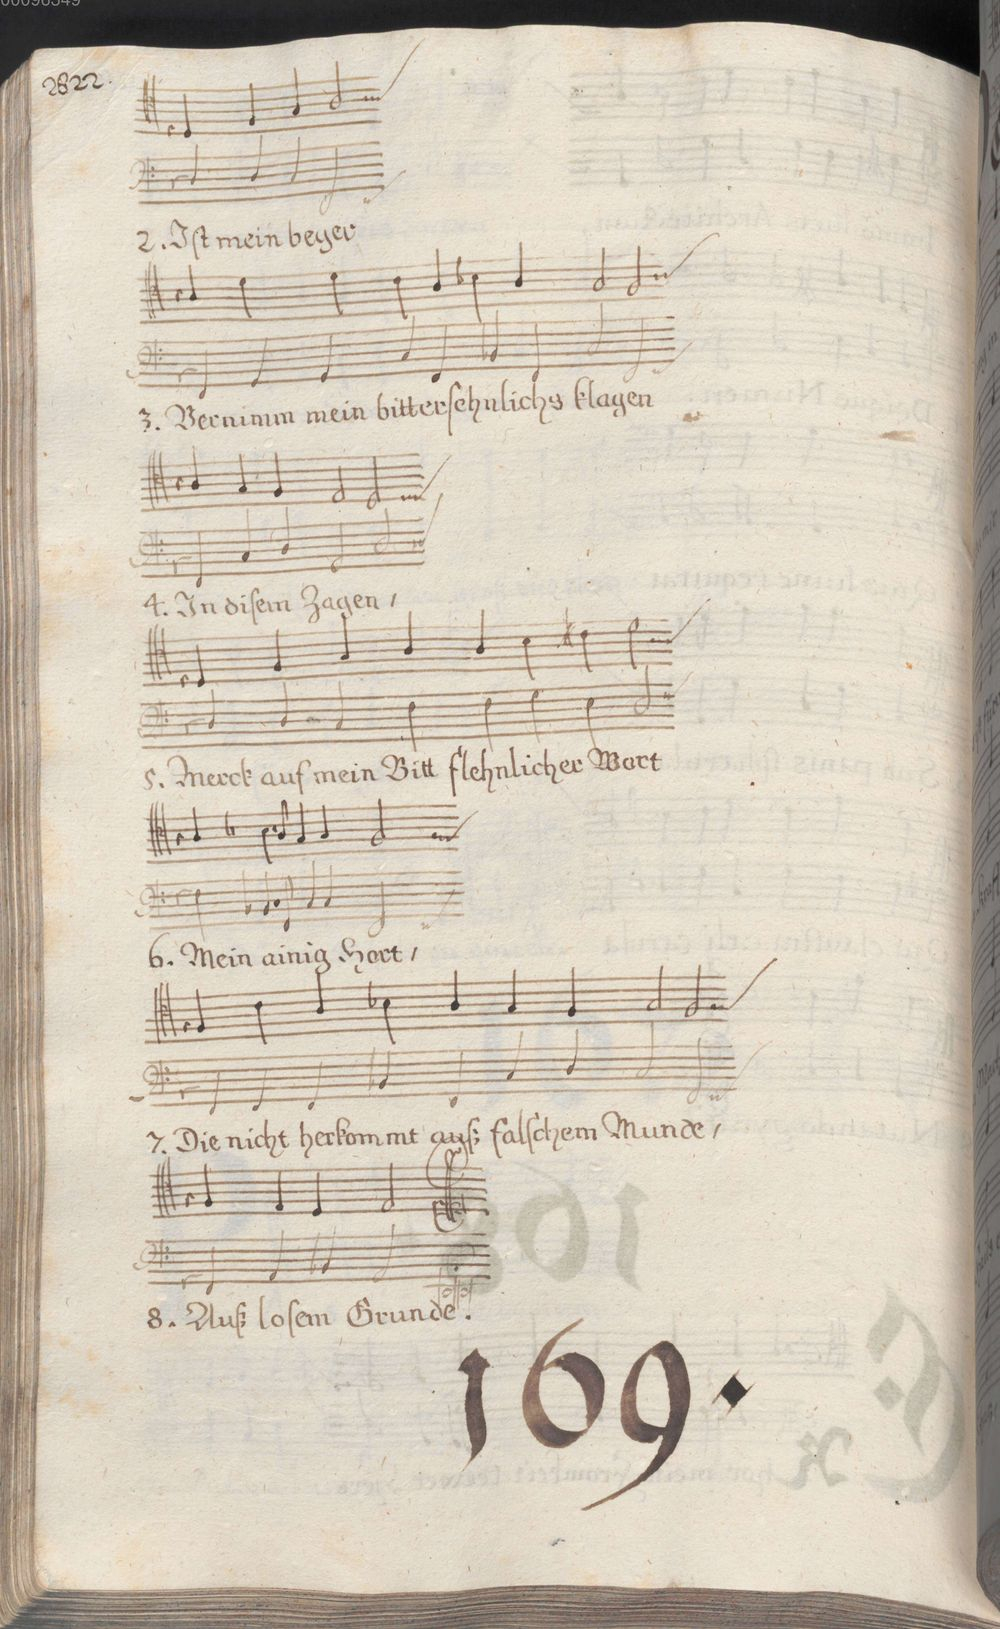 2822.
2. Ist mein beger
3. Vernimm mein bittersehnlichs klagen
4. In disem Zagen,
5. Merck auf mein Bitt flehnlicher Wort
6. Mein ainig Hort,
7. Die nicht herkommt auß falschem Munde,
8. Auß losem Grunde.
169.